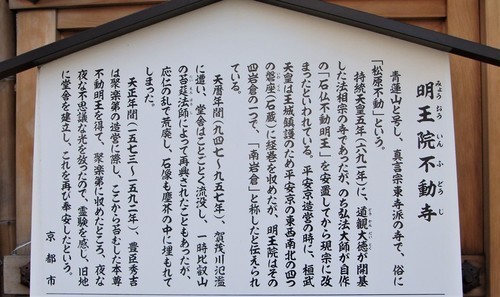 明王院不動寺
みょうおういんふどうじ
青蓮山と号し、真言宗東寺派の寺で、俗に
「松原不動」という。
持統天皇五年(六九一年)に、道観大徳が開基
した法相宗の寺であったが、のち弘法大師が自作
の「石仏不動明王」を安置してから現宗に改
まったといわれている。平安京造営の時に、桓武
天皇は王城鎮護のため平安京の東西南北の四つ
の磐座(石蔵)に経巻を収めたが、明王院はその
四岩倉の一つで、「南岩倉」と称したと伝えられ
ている。
天暦年間(九四七~九五七年)、賀茂川氾濫
に遭い、堂舎はことごとく流没し、一時比叡山
の苔莚法師によって再興されたこともあったが、
応仁の乱で荒廃し、石像も塵芥の中に埋もれて
しまった。
天正年間(一五七三~一五九二年)、豊臣秀吉
は聚楽第の造営に際し、ここから苔むした本尊
不動明王を得て、聚楽第に収めたところ、夜な
夜な不思議な光を放ったので、霊験を感じ、旧地
に堂舎を建立し、これを再び奉安したという。
京都市